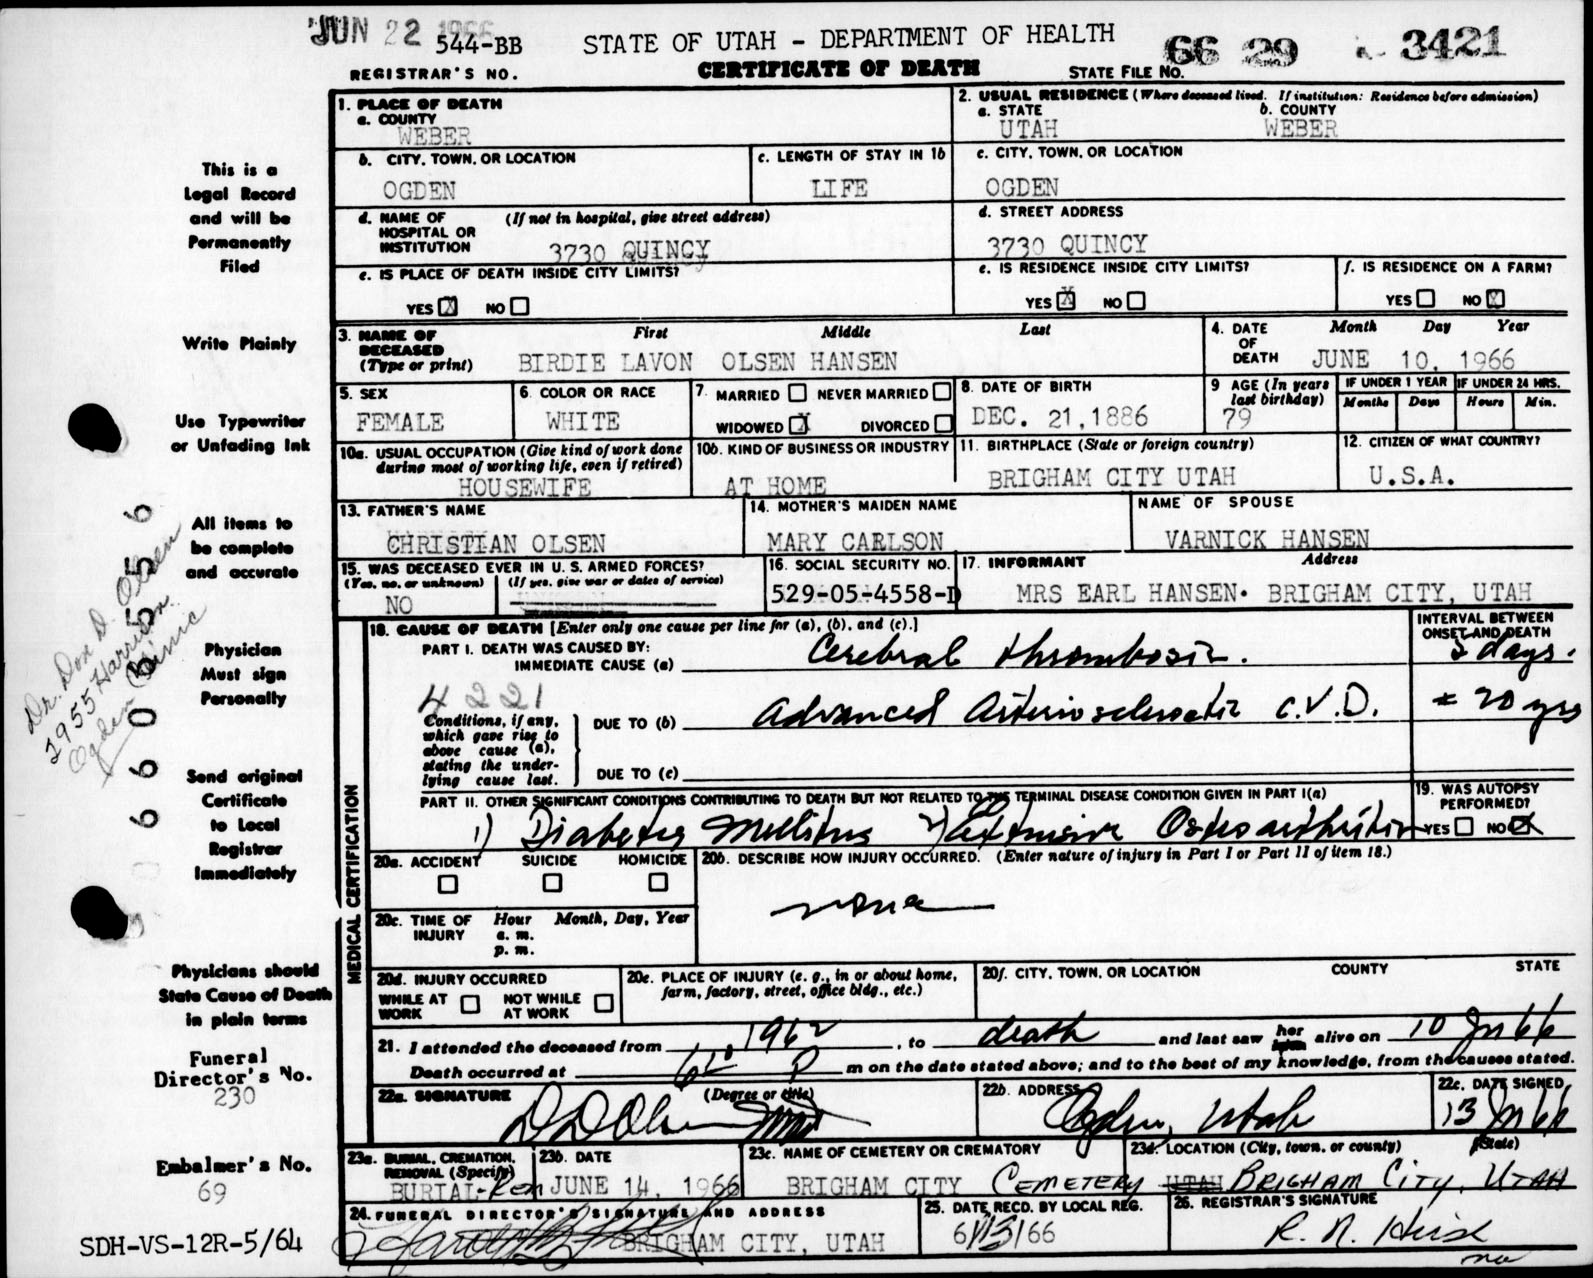 JUN 22 1966
544-BB STATE OF UTAH - DEPARTMENT OF HEALTH 66 29 3421
REGISTRAR'S NO. CERTIFICATE OF DEATH STATE FILE No.
1. PLACE OF DEATH
a. COUNTY
WEBER
2. USUAL RESIDENCE (Where deceased lived. If institution: Residence before admission)
a. STATE b. COUNTY
UTAH WEBER
b. CITY, TOWN, OR LOCATION c. LENGTH OF STAY IN 1b c. CITY, TOWN, OR LOCATION
OGDEN LIFE OGDEN
d. NAME OF HOSPITAL OR INSTITUTION (If not in hospital, give street address)
3730 QUINCY
d. STREET ADDRESS
3730 QUINCY
e. IS PLACE OF DEATH INSIDE CITY LIMITS?
YES X NO
e. IS RESIDENCE INSIDE CITY LIMITS? f. IS RESIDENCE ON A FARM?
YES X NO YES NO X
3. NAME OF DECEASED (Type or print) First Middle Last
BIRDIE LAVON OLSEN HANSEN
4. DATE OF DEATH Month Day Year
JUNE 10, 1966
5. SEX
FEMALE
6. COLOR OR RACE
WHITE
7. MARRIED NEVER MARRIED
WIDOWED X DIVORCED
8. DATE OF BIRTH
DEC. 21,1886
9 AGE (In years last birthday)
79
IF UNDER 1 YEAR IF UNDER 24 HRS.
Months Days Hours Min.
10a. USUAL OCCUPATION (Give kind of work done during most of working life, even if retired)
HOUSEWIFE
10b. KIND OF BUSINESS OR INDUSTRY
AT HOME
11. BIRTHPLACE (State or foreign country)
BRIGHAM CITY UTAH
12. CITIZEN OF WHAT COUNTRY?
U.S.A.
13. FATHER'S NAME
CHRISTIAN OLSEN
14. MOTHER'S MAIDEN NAME
MARY CARLSON
NAME OF SPOUSE
VARNICK HANSEN
15. WAS DECEASED EVER IN U.S. ARMED FORCES?
(Yes, no, or unknown) (If yes, give war or dates of service)
NO
16. SOCIAL SECURITY NO.
529-05-4558-D
17. INFORMANT Address
MRS EARL HANSEN. BRIGHAM CITY, UTAH
MEDICAL CERTIFICATION
18. CAUSE OF DEATH [Enter only one cause per line for (a), (b), and (c).]
INTERVAL BETWEEN ONSET AND DEATH
PART I. DEATH WAS CAUSED BY:
IMMEDIATE CAUSE (a) Cerebral thrombosis. days.
4221
Conditions, if any, which gave rise to above cause (a), stating the underlying cause last.
DUE TO (b) Advanced Arteriosclerotic C.V.D. ± 20 yrs
DUE TO (c)
PART II. OTHER SIGNIFICANT CONDITIONS CONTRIBUTING TO DEATH BUT NOT RELATED TO THE TERMINAL DISEASE CONDITION GIVEN IN PART I(a)
1) Diabetes Mellitus 2) Extensive Osteoarthritis
19. WAS AUTOPSY PERFORMED?
YES NO X
20a. ACCIDENT SUICIDE HOMICIDE
20b. DESCRIBE HOW INJURY OCCURRED. (Enter nature of injury in Part I or Part II of item 18.)
none
20c. TIME OF INJURY Hour Month, Day, Year
a. m.
p. m.
20d. INJURY OCCURRED
WHILE AT WORK NOT WHILE AT WORK
20e. PLACE OF INJURY (e. g., in or about home, farm, factory, street, office bldg., etc.)
20f. CITY, TOWN, OR LOCATION COUNTY STATE
21. I attended the deceased from 1962, to death and last saw her alive on 10 Jn 66
Death occurred at P m on the date stated above; and to the best of my knowledge, from the causes stated.
22a. SIGNATURE (Degree or title)
D D Olsen MD
22b. ADDRESS
Ogden, Utah
22c. DATE SIGNED
13 Jn 66
23a. BURIAL, CREMATION, REMOVAL (Specify)
BURIAL-Rem
23b. DATE
JUNE 14, 1966
23c. NAME OF CEMETERY OR CREMATORY
BRIGHAM CITY CEMETERY
23d. LOCATION (City, town, or county) (State)
UTAH BRIGHAM CITY, UTAH
24. FUNERAL DIRECTOR'S SIGNATURE AND ADDRESS
BRIGHAM CITY, UTAH
25. DATE RECD. BY LOCAL REG.
6/13/66
26. REGISTRAR'S SIGNATURE
This is a
Legal Record
and will be
Permanently
Filed
Write Plainly
Use Typewriter
or Unfading Ink
All items to
be complete
and accurate
Physician
Must sign
Personally
Send original
Certificate
to Local
Registrar
Immediately
Physicians should
State Cause of Death
in plain terms
Funeral
Director's No.
230
Embalmer's No.
69
SDH-VS-12R-5/64
Dr. Don D. Olsen
2955 Harrison
Ogden Clinic